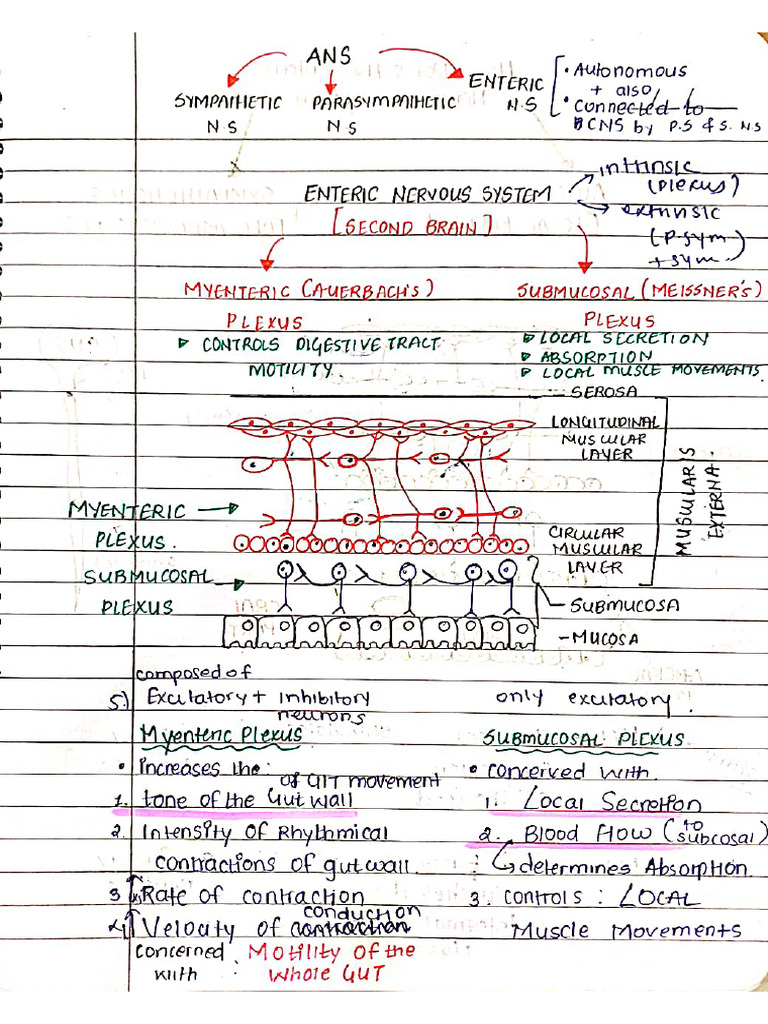 ANS
SYMPATHETIC N.S
PARASYMPATHETIC N.S
ENTERIC N.S
• Autonomous
+ also
• connected to
CNS by P.S & S. N.S
ENTERIC NERVOUS SYSTEM
[SECOND BRAIN]
intrinsic
(plexus)
extrinsic
(P-sym)
+sym
MYENTERIC (AUERBACH'S)
PLEXUS
▷ CONTROLS DIGESTIVE TRACT
MOTILITY.
SUBMUCOSAL (MEISSNER'S)
PLEXUS
▷ LOCAL SECRETION
▷ ABSORPTION
▷ LOCAL MUSCLE MOVEMENTS
SEROSA
LONGITUDINAL
MUSCULAR
LAYER
MUSCULARIS
EXTERNA.
MYENTERIC
PLEXUS.
CIRCULAR
MUSCULAR
LAYER
SUBMUCOSAL
PLEXUS
- SUBMUCOSA
- MUCOSA
composed of
5.) Excitatory + inhibitory
neurons
only excitatory.
Myenteric Plexus
SUBMUCOSAL PLEXUS
• increases the:
of GIT movement
1. tone of the Gut wall
2. Intensity of Rhythmical
contractions of gut wall.
3. Rate of contraction
conduction
4. Velocity of contraction
concerned with : Motility of the
Whole GUT
• concerved with.
1. Local Secretion
2. Blood flow (to subcosal)
determines Absorption.
3. controls : LOCAL
Muscle Movements